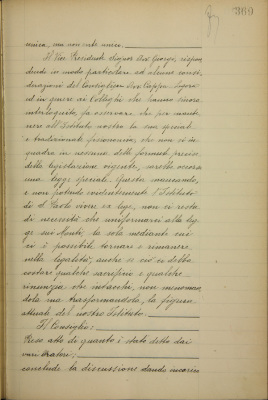 369
unica, ma non ente unico.
Il Vice Presidente Signor Avv. Giorgi, rispon
dendo in modo particolare ad alcune consi
derazioni del Consigliere Avv. Cappa Legora
ed in genere ai Colleghi che hanno finora
interloquito, fa osservare che per mante
nere all'Istituto nostro la sua speciale
e tradizionale fisionomia, che non si in
quadra in nessuna delle formule precise
della legislazione vigente, sarebbe occorsa
una legge speciale. Questa mancando,
e non potendo evidentemente l'Istituto
di S. Paolo vivere ex lege, non ci resta
di necessità che uniformarci alla leg
ge sui Monti, la sola mediante cui
ci è possibile tornare e rimanere
nella legalità, anche se ciò ci debba
costare qualche sacrificio e qualche
rinunzia che intacchi, non menoman
dola ma trasformandola, la figura
attuale del nostro Istituto.
Il Consiglio:
Preso atto di quanto è stato detto dai
vari oratori;
conclude la discussione dando incarico